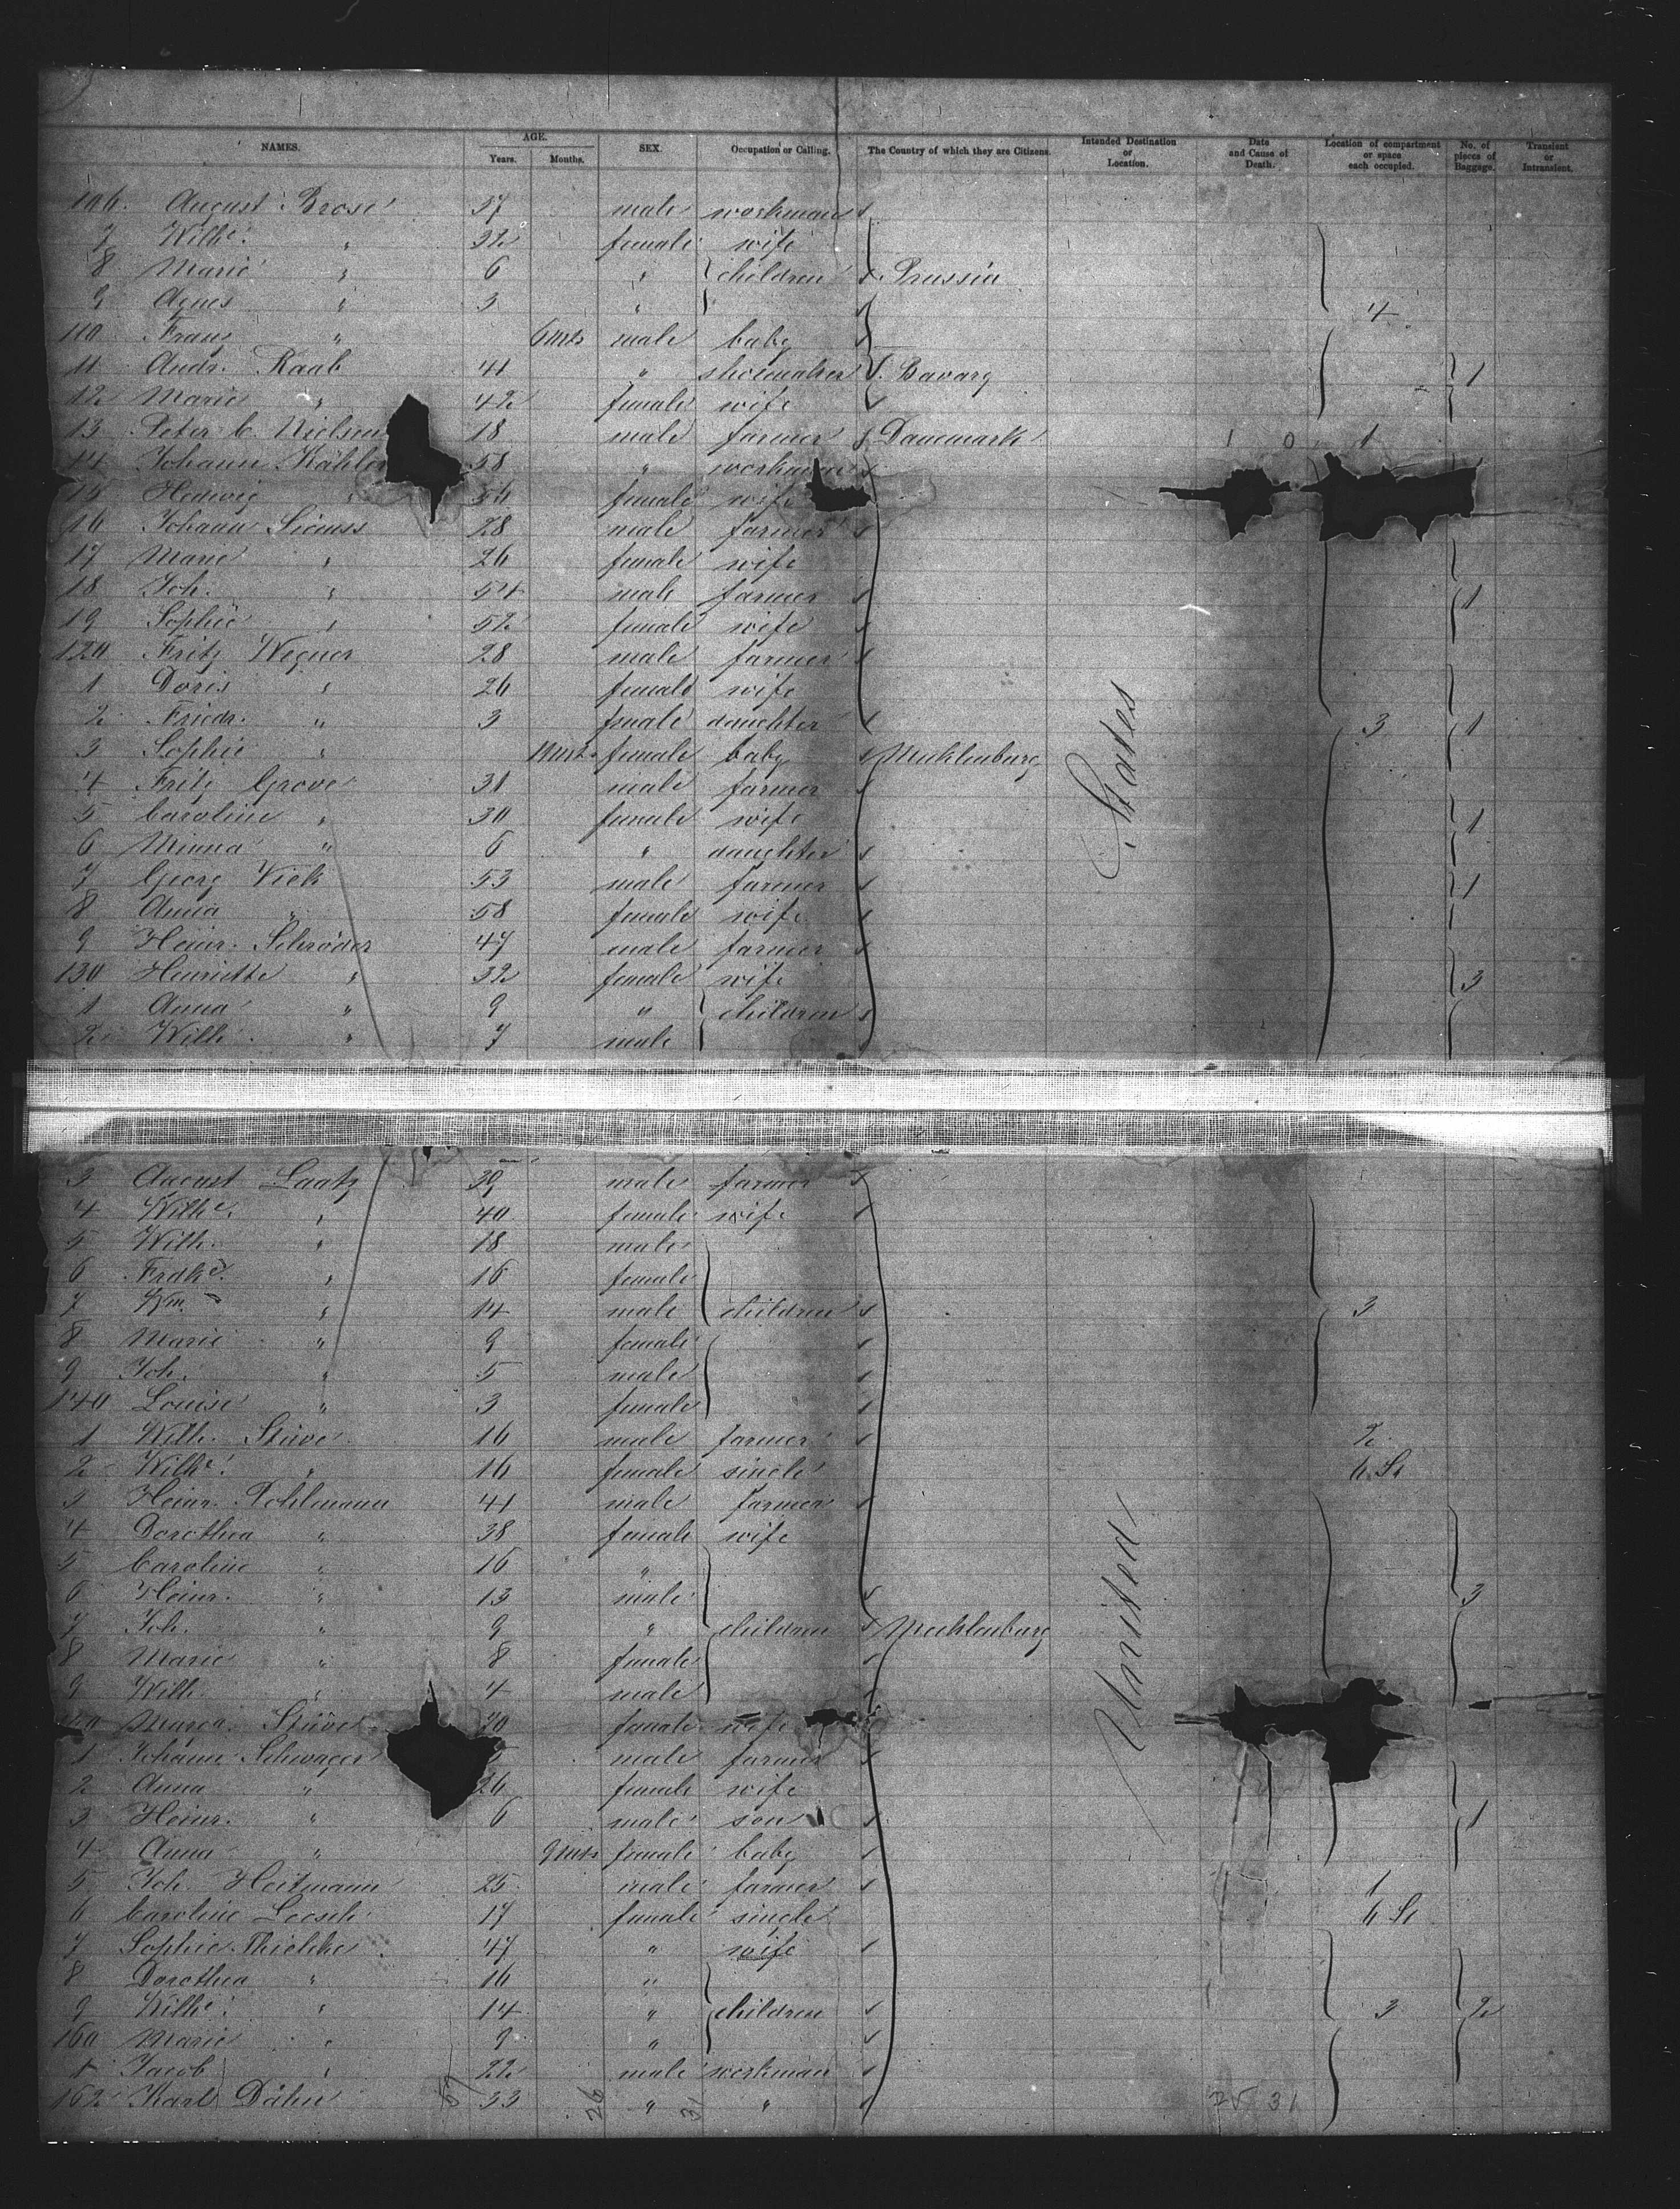 NAMES. AGE. Years. Months. SEX. Occupation or Calling. The Country of which they are Citizens. Intended Destination or Location. Date and Cause of Death. Location of compartment or space each occupied. No. of pieces of Baggage. Transient or Intransient.
106. August Brose 37 male workman
7 Wilhe. " 32 female wife
8 Marie " 6 " children Prussia
9 Agnes " 3 " " 4
110 Franz " 6 mts male baby
11 Andr. Raab 41 " shoemaker Bavary 1
12 Marie " 42 female wife
13 Peter C. Nielsen 18 male farmer Danemark 1 0 1
14 Johann Kähler 58 " workman
15 Hedwig " 56 female wife
16 Johann Sieuss 28 male farmer
17 Marie " 26 female wife
18 Joh. " 54 male farmer 1
19 Sophie " 52 female wife
120 Fritz Wegner 28 male farmer
1 Doris " 26 female wife
2 Friedr. " 3 female daughter 3 1
3 Sophie " female baby Mecklenburg
4 Fritz Grove 31 male farmer
5 Caroline " 30 female wife 1
6 Minna " 6 " daughter
7 Georg Vick 53 male farmer 1
8 Anna " 58 female wife
9 Heinr. Schröder 47 male farmer
130 Henriette " 32 female wife 3
1 Anna " 9 " children
2 Wilh. " 7 male
3 August Laatz 39 male farmer
4 Wilhe. " 40 female wife
5 Wilh. " 18 male
6 Frdke. " 16 female
7 Wm. " 14 male children 3
8 Marie " 9 female
9 Joh. " 5 male
140 Louise " 3 female
1 Wilh. Stüve 16 male farmer 2
2 Wilhe. " 16 female single 6 St
3 Heinr. Pohlmann 41 male farmer
4 Dorothea " 38 female wife
5 Caroline " 16 "
6 Heinr. " 13 male 3
7 Joh. " 9 " children Mecklenburg
8 Marie " 8 female
9 Wilh. " 4 male
Maria Stüve female wife
1 Johann Schwager male farmer
2 Anna " 26 female wife
3 Heinr. " 6 male son 1
4 Anna " 9 mts female baby
5 Joh. Heitmann 25 male farmer 1
6 Caroline Loesch 17 female single 6 St
7 Sophie Thielke 47 " wife
8 Dorothea " 16 "
9 Wilhe. " 14 " children 3 2
160 Marie " 9 "
1 Jacob " 22 male workman
162 Karl Dähn 33 " "
United States
57 26 31 25 31